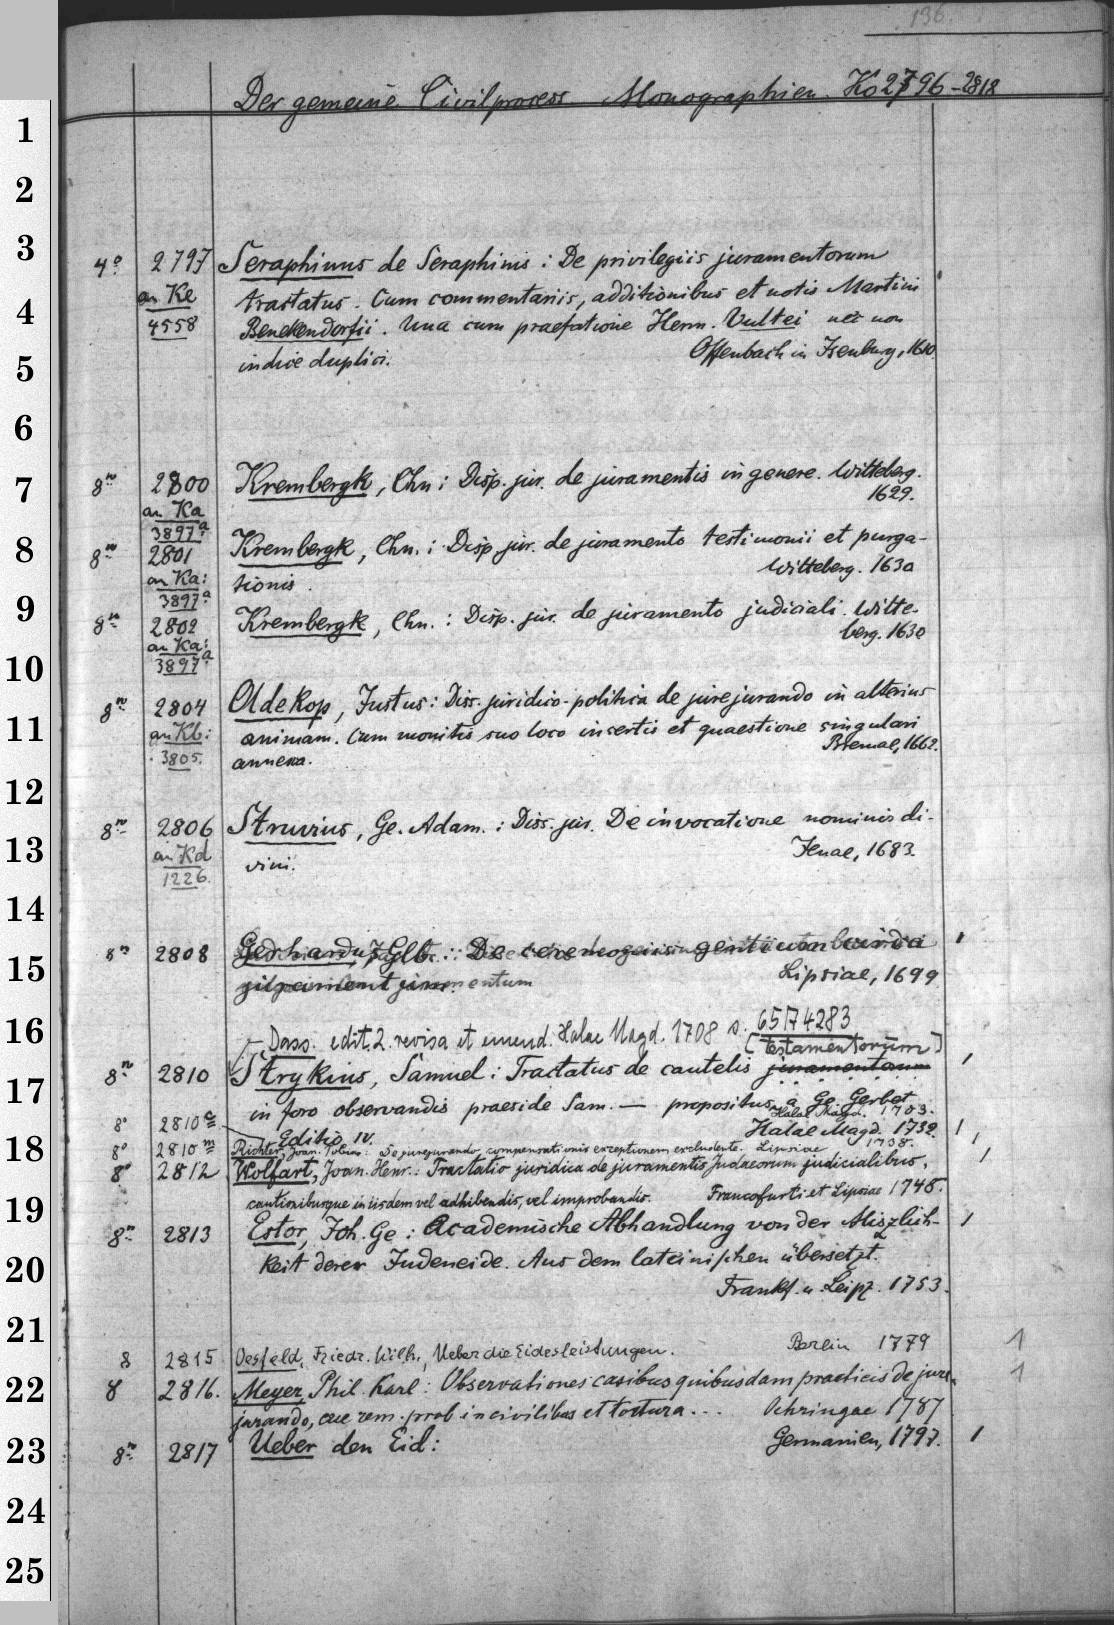 136.
Der gemeine Civilprozess Monographien. Ko 2796-2818
1
2
3
4
5
6
7
8
9
10
11
12
13
14
15
16
17
18
19
20
21
22
23
24
25
4° 2797 Seraphinus de Seraphinis: De privilegiis juramentorum
an Ke tractatus. Cum commentariis, additionibus et notis Martini
4558 Benekendorfii. Una cum praefatione Herm. Vultei nec non
indice duplici. Offenbach in Isenburg, 1610.
8n 2800 Krembergk, Chn: Disp. jur. de juramentis in genere. Witteberg.
an Ka 1629.
3897a
8n 2801 Krembergk, Chn.: Disp. jur. de juramento testimonii et purga-
an Ka: tionis. Witteberg. 1630
3897a
8n 2802 Krembergk, Chn.: Disp. jur. de juramento judiciali. Witte-
an Ka: berg. 1630
3897a
8n 2804 Oldekop, Justus: Diss. juridico-politica de jurejurando in alterius
an Kb: animam. Cum monitis suo loco insertis et quaestione singulari
3805. annexa. Bremae, 1662.
8n 2806 Struvius, Ge. Adam.: Diss. jur. De invocatione nominis di-
an Kd vini. Jenae, 1683.
1226.
8n 2808 Gerhardus, Glb.: De
Lipsiae, 1699
Dass. edit. 2. revisa et emend. Halae Magd. 1708 s. 65 17 4283
[testamentorum]
8n 2810 Strykius, Samuel: Tractatus de cautelis juramentorum
in foro observandis praeside Sam. — propositus à Ge. Gerbet
Halae Magd. 1703.
8° 2810c Editio IV. Halae Magd. 1732.
8° 2810m Richter, Joan. Tobias: De jurejurando, compensationis exceptionem excludente. Lipsiae 1738.
8° 2812 Wolfart, Joan. Henr.: Tractatio juridica de juramentis Judaeorum judicialibus,
cautionibusque in iisdem vel adhibendis, vel improbandis. Francofurti et Lipsiae 1748.
8n 2813 Estor, Joh. Ge: Academische Abhandlung von der Misslich-
keit derer Judeneide. Aus dem lateinischen übersetzt.
Frankf. u. Leipz. 1753.
8 2815 Oesfeld, Friedr. Wilh., Ueber die Eidesleistungen. Berlin 1779 1
8 2816. Meyer, Phil. Karl: Observationes casibus quibusdam practicis de jure- 1
jurando, cue rem. prob in civilibus et tortura... Oehringae 1787
8n 2817 Ueber den Eid: Germanien, 1797.